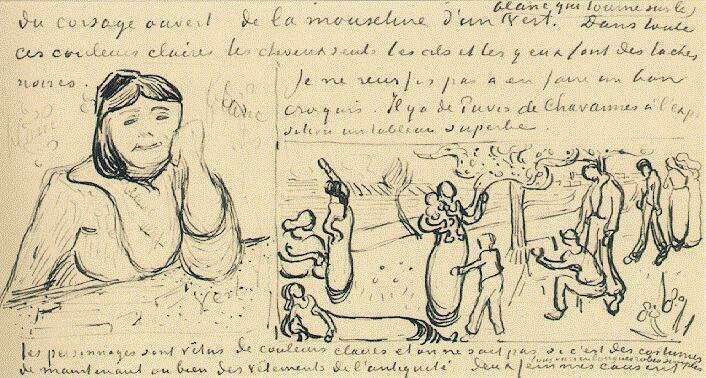 blanc qui tourne sur le
du corsage ouvert de la mousseline d'un vert. Dans toute
ces couleurs claires les cheveux seuls les cils et les yeux font des taches
noires.
Je ne reussis pas a en faire un bon
croquis. Il y a de Puvis de Chavannes à l'expo
sition un tableau superbe.
blanc
vert
les personnages sont vêtus de couleurs claires et on ne sait pas si c'est des costumes
de maintenant ou bien des vêtements de l'antiquité deux femmes causent